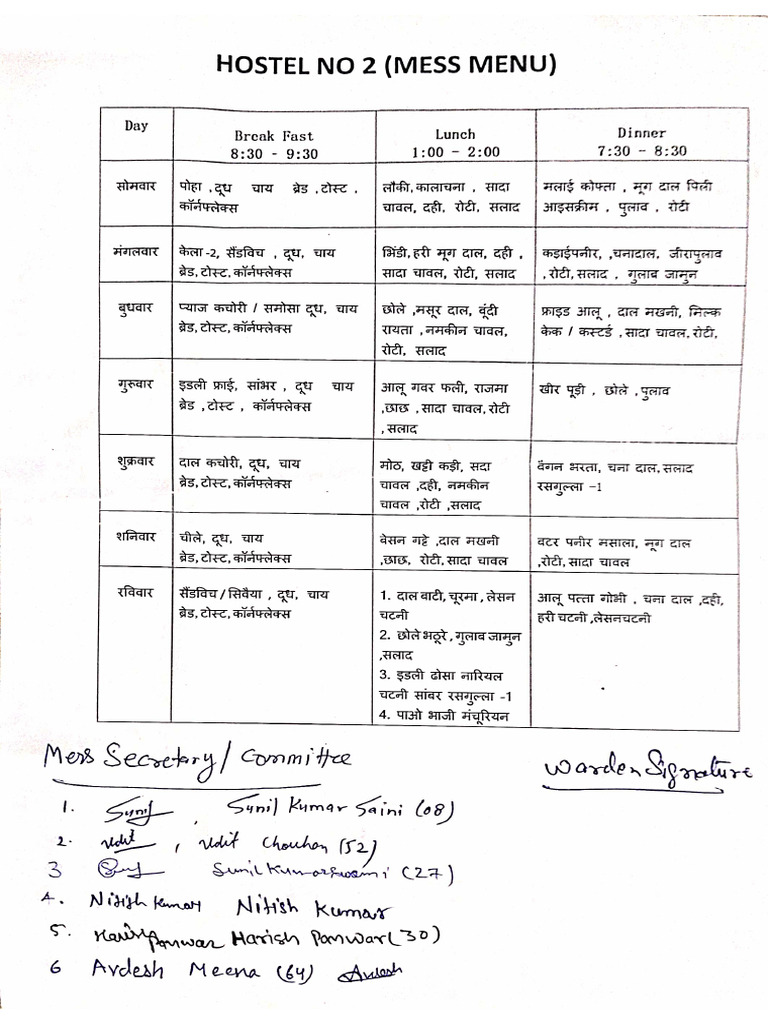 HOSTEL NO 2 (MESS MENU)
Day
Break Fast
8:30 - 9:30
Lunch
1:00 - 2:00
Dinner
7:30 - 8:30
सोमवार
पोहा ,दूध चाय ब्रेड ,टोस्ट ,
कॉर्नफ्लेक्स
लौकी,कालाचना , सादा
चावल, दही, रोटी, सलाद
मलाई कोफ्ता , मूग दाल पिली
आइसक्रीम , पुलाव , रोटी
मंगलवार
केला -2, सैंडविच , दूध, चाय
ब्रेड,टोस्ट,कॉर्नफ्लेक्स
भिंडी,हरी मूग दाल, दही ,
सादा चावल, रोटी, सलाद
कड़ाईपनीर, ,चनादाल, जीरापुलाव
,रोटी,सलाद , गुलाब जामुन
बुधवार
प्याज कचोरी / समोसा दूध, चाय
ब्रेड,टोस्ट,कॉर्नफ्लेक्स
छोले ,मसूर दाल, बूंदी
रायता , नमकीन चावल,
रोटी, सलाद
फ्राइड आलू , दाल मखनी, मिल्क
केक / कस्टर्ड , सादा चावल,रोटी,
गुरूवार
इडली फ्राई, सांभर , दूध चाय
ब्रेड ,टोस्ट , कॉर्नफ्लेक्स
आलू गवर फली, राजमा
,छाछ , सादा चावल, रोटी
,सलाद
खीर पूड़ी , छोले ,पुलाव
शुक्रवार
दाल कचोरी, दूध, चाय
ब्रेड,टोस्ट,कॉर्नफ्लेक्स
मोठ, खट्टी कड़ी, सदा
चावल ,दही, नमकीन
चावल ,रोटी ,सलाद
वेंगन भरता, चना दाल,सलाद
रसगुल्ला -1
शनिवार
चीले, दूध, चाय
ब्रेड,टोस्ट,कॉर्नफ्लेक्स
वेसन गट्टे ,दाल मखनी
,छाछ, रोटी,सादा चावल
वटर पनीर मसाला, मूग दाल
,रोटी,सादा चावल
रविवार
सैंडविच / सिवैया , दूध, चाय
ब्रेड,टोस्ट,कॉर्नफ्लेक्स
1. दाल बाटी, चूरमा , लेसन
चटनी
2. छोले भठूरे , गुलाब जामुन
,सलाद
3. इडली ढोसा नारियल
चटनी सांबर रसगुल्ला -1
4. पाओ भाजी मंचूरियन
आलू पत्ता गोभी , चना दाल ,दही,
हरी चटनी ,लेसनचटनी
Mess Secretary/Committee
Warden Signature
1. Sunil , Sunil Kumar Saini (08)
2. Udit , Udit Chouhan (52)
3 Sunil Kumar Swami (27)
4. Nitish Kumar Nitish Kumar
5. Harish Panwar Harish Panwar (30)
6 Avdesh Meena (64) Avdesh